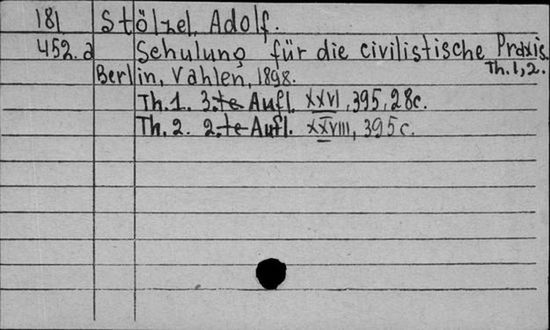 181 Stölzel, Adolf.
452.a Schulung für die civilistische Praxis.
Th. 1, 2.
Berlin, Vahlen, 1898.
Th. 1. 3:te Aufl. XXVI, 395, 28c.
Th. 2. 2:te Aufl. XXVIII, 395 c.